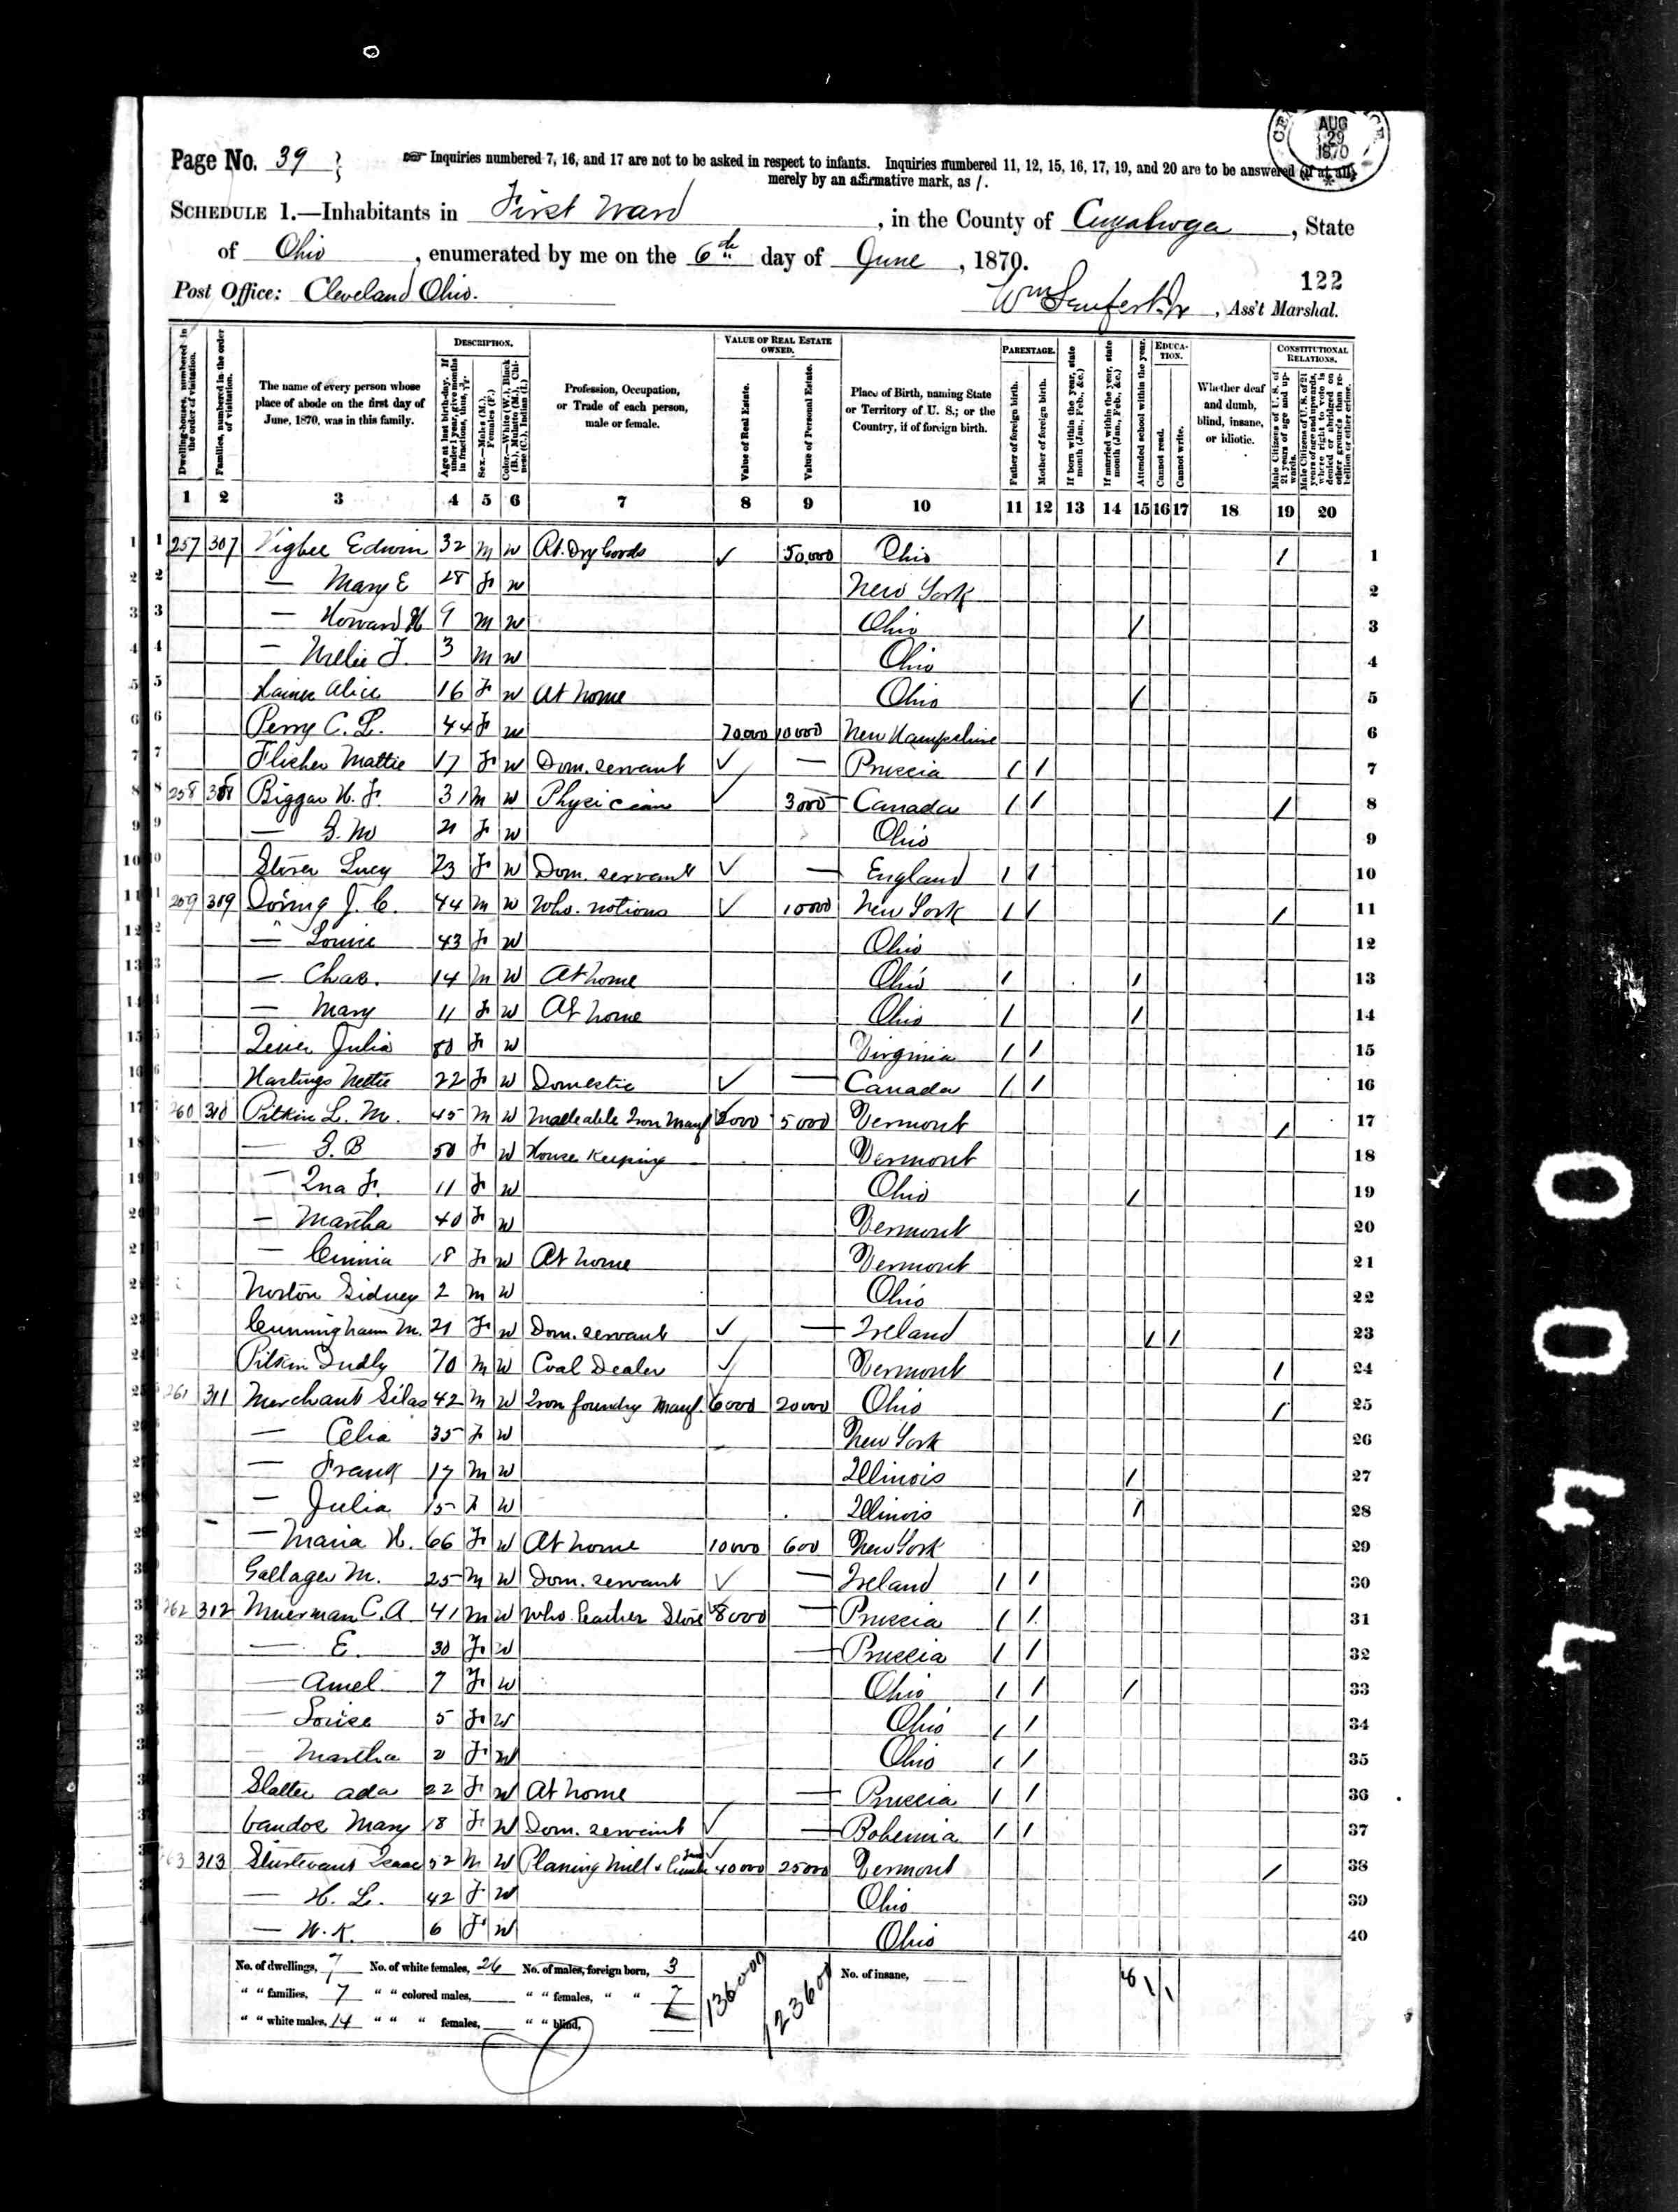 CE
AUG
29
1870
Page No. 39
Inquiries numbered 7, 16, and 17 are not to be asked in respect to infants. Inquiries numbered 11, 12, 15, 16, 17, 19, and 20 are to be answered (if at all)
merely by an affirmative mark, as /.
SCHEDULE 1.—Inhabitants in First Ward, in the County of Cuyahoga, State
of Ohio, enumerated by me on the 6th day of June, 1870.
122
Post Office: Cleveland Ohio.
Wm , Ass't Marshal.
Dwelling-houses, numbered in the order of visitation.
Families, numbered in the order of visitation.
The name of every person whose place of abode on the first day of June, 1870, was in this family.
DESCRIPTION.
Age at last birth-day. If under 1 year, give months in fractions, thus, 3/12.
Sex.—Males (M.), Females (F.)
Color.—White (W.), Black (B.), Mulatto (M.), Chinese (C.), Indian (I.)
Profession, Occupation, or Trade of each person, male or female.
VALUE OF REAL ESTATE OWNED.
Value of Real Estate.
Value of Personal Estate.
Place of Birth, naming State or Territory of U. S.; or the Country, if of foreign birth.
PARENTAGE.
Father of foreign birth.
Mother of foreign birth.
If born within the year, state month (Jan., Feb., &c.)
If married within the year, state month (Jan., Feb., &c.)
Attended school within the year.
EDUCATION.
Cannot read.
Cannot write.
Whether deaf and dumb, blind, insane, or idiotic.
CONSTITUTIONAL RELATIONS.
Male Citizens of U. S. of 21 years of age and upwards.
Male Citizens of U. S. of 21 years of age and upwards, where right to vote is denied or abridged on other grounds than rebellion or other crime.
1 2 3 4 5 6 7 8 9 10 11 12 13 14 15 16 17 18 19 20
1 257 307 Higbee Edwin 32 M W Rt. Dry Goods ✓ 50,000 Ohio / 1
2 — Mary E 28 F W New York 2
3 — Howard H 9 M W Ohio / 3
4 — Willie T. 3 M W Ohio 4
5 Alice 16 F W At home Ohio / 5
6 Perry C. L. 44 F W 20000 10000 New Hampshire 6
7 Mattie 17 F W Dom. servant ✓ — Prussia / / 7
8 258 308 Biggar H. F. 31 M W Physician ✓ 3000 Canada / / / 8
9 — 21 F W Ohio 9
10 Lucy 23 F W Dom. servant ✓ — England / / 10
11 259 309 J. C. 44 M W Who. notions ✓ 10000 New York / / / 11
12 — Louise 43 F W Ohio 12
13 — Chas. 14 M W At home Ohio / / 13
14 — Mary 11 F W At home Ohio / / 14
15 Julia 80 F W Virginia / / 15
16 Hastings Nettie 22 F W Domestic ✓ — Canada / / 16
17 260 310 Pitkin L. M. 45 M W Malleable Iron Manf 5000 Vermont / 17
18 — B 50 F W House Keeping Vermont 18
19 — Ina F. 11 F W Ohio / 19
20 — Martha 40 F W Vermont 20
21 — 18 F W At home Vermont 21
22 Norton Sidney 2 M W Ohio 22
23 Cunningham M. 21 F W Dom. servant ✓ — Ireland / / 23
24 Pitkin Dudly 70 M W Coal Dealer ✓ Vermont / 24
25 261 311 Merchant Silas 42 M W Iron foundry Manf. 6000 20000 Ohio / 25
26 — Celia 35 F W New York 26
27 — Frank 17 M W Illinois / 27
28 — Julia 15 F W Illinois / 28
29 — Maria H. 66 F W At home 10000 600 New York 29
30 Gallager M. 25 M W Dom. servant ✓ — Ireland / / 30
31 262 312 C. A 41 M W Who. leather Store 8000 — Prussia / / 31
32 — E. 30 F W — Prussia / / 32
33 — Amel 7 F W Ohio / / / 33
34 — Louise 5 F W Ohio / / 34
35 — Martha 2 F W Ohio / / 35
36 Ada 22 F W At home — Prussia / / 36
37 Mary 18 F W Dom. servant ✓ — Bohemia / / 37
38 313 Sturtevant Isaac 52 M W Planing Mill & 40000 25000 Vermont / 38
39 — H. L. 42 F W Ohio 39
40 — W. K. 6 F W Ohio 40
No. of dwellings, 7 No. of white females, 26 No. of males, foreign born, 3 No. of insane,
" " families, 7 " " colored males, " " females, " " 7
" " white males, 14 " " " females, " " blind,
7400